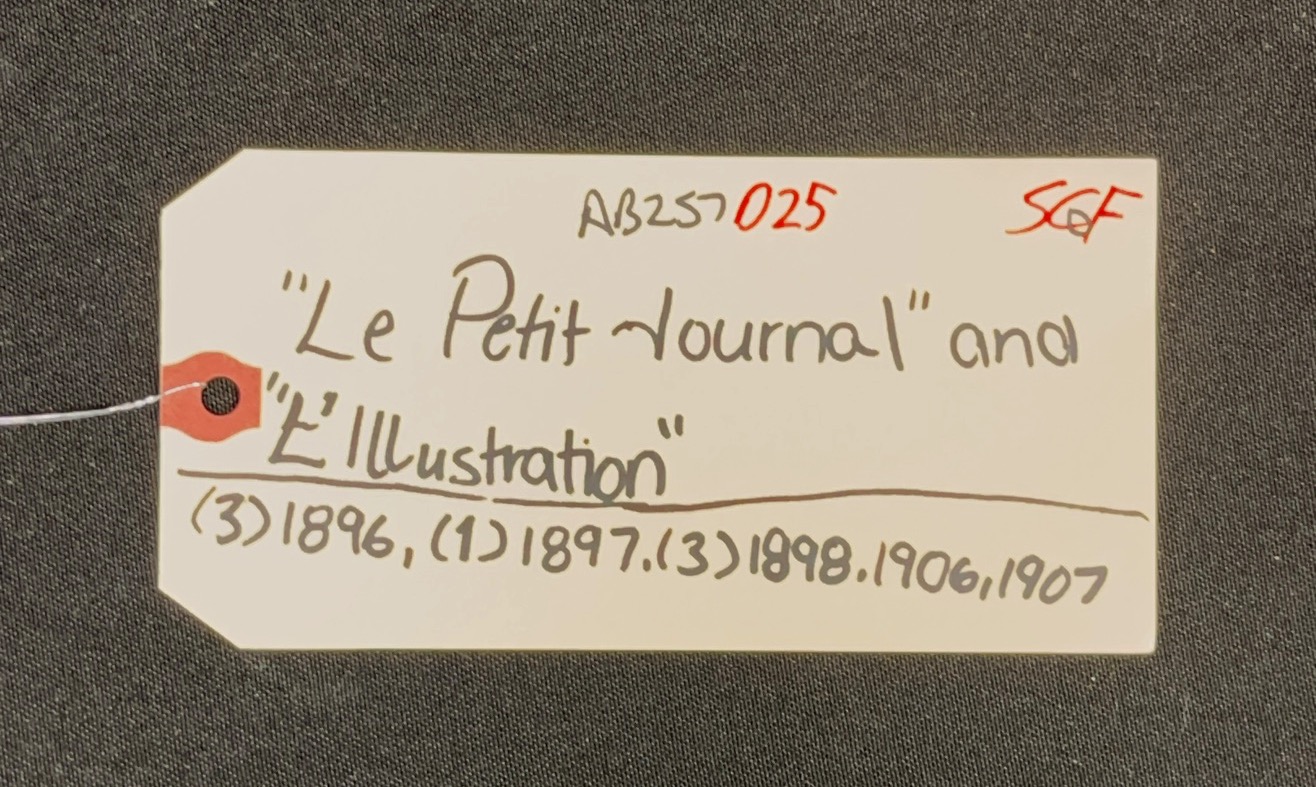 AB257025 SGF
"Le Petit Journal" and
"L'Illustration"
(3)1896, (1)1897.(3)1898.1906,1907